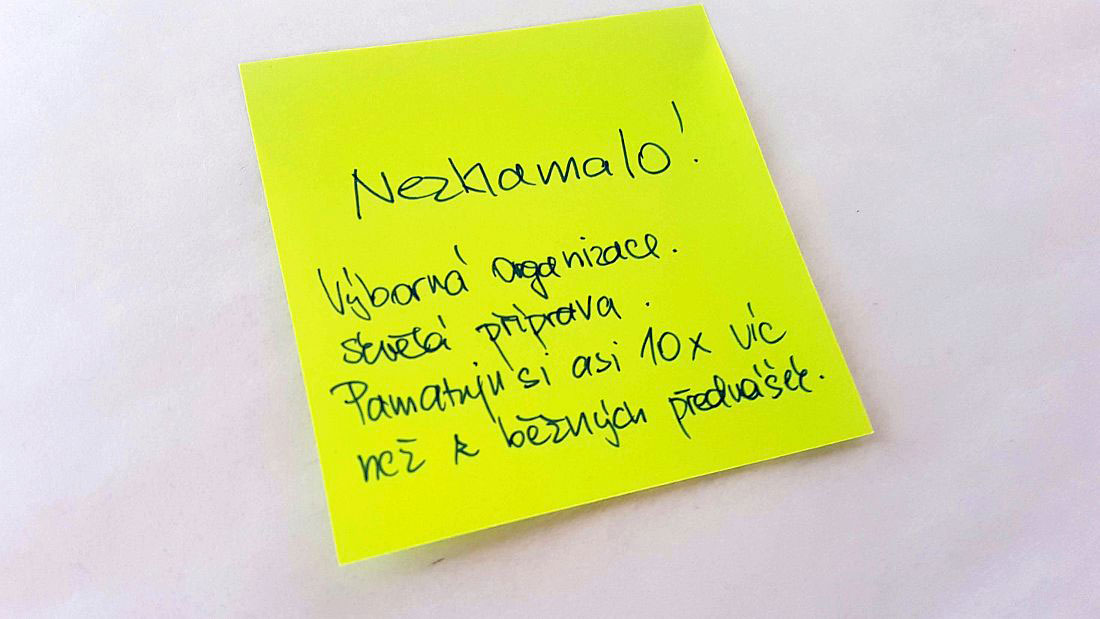 Nezklamalo!
Výborná organizace.
skvělá příprava.
Pamatuju si asi 10x víc
než z běžných přednášek.